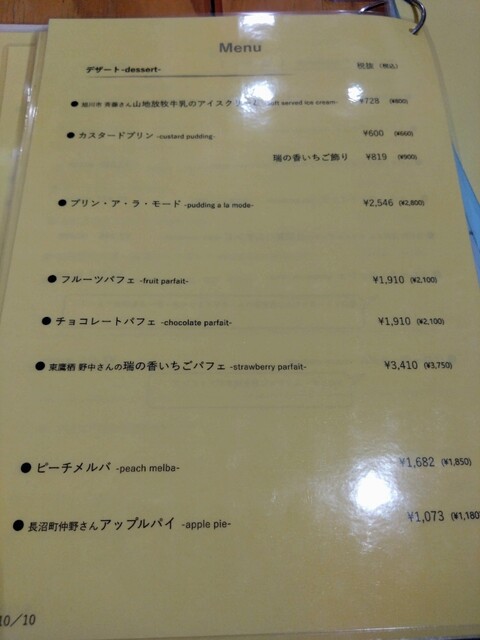 Menu
デザート-dessert- 税抜 (税込)
● 旭川市 斉藤さん山地放牧牛乳のアイスクリーム -soft served ice cream- ¥728 (¥800)
● カスタードプリン -custard pudding- ¥600 (¥660)
瑞の香いちご飾り ¥819 (¥900)
● プリン・ア・ラ・モード -pudding a la mode- ¥2,546 (¥2,800)
● フルーツパフェ -fruit parfait- ¥1,910 (¥2,100)
● チョコレートパフェ -chocolate parfait- ¥1,910 (¥2,100)
● 東鷹栖 野中さんの瑞の香いちごパフェ -strawberry parfait- ¥3,410 (¥3,750)
● ピーチメルバ -peach melba- ¥1,682 (¥1,850)
● 長沼町仲野さんアップルパイ -apple pie- ¥1,073 (¥1,180
10/10